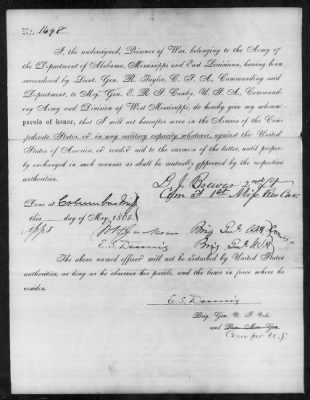 No. 1698
I, the undersigned, Prisoner of War, belonging to the Army of
the Department of Alabama, Mississippi and East Louisiana, having been
surrendered by Lieut. Gen. R. Taylor, C. S. A., Commanding said
Department, to Maj. Gen. E. R. S. Canby, U. S. A., Commanding
Army and Division of West Mississippi, do hereby give my solemn
parole of honor, that I will not hereafter serve in the Armies of the Con-
federate States, or in any military capacity whatever, against the United
States of America, or render aid to the enemies of the latter, until prop-
erly exchanged in such manner as shall be mutually approved by the respective
authorities.
Done at Columbus Miss
this day of May, 1865.
E. S. Dennis Brig
The above named officer will not be disturbed by United States
authorities, as long as he observes his parole, and the laws in force where he
resides.
E. S. Dennis
Brig. Gen. U. S. Vols.
and